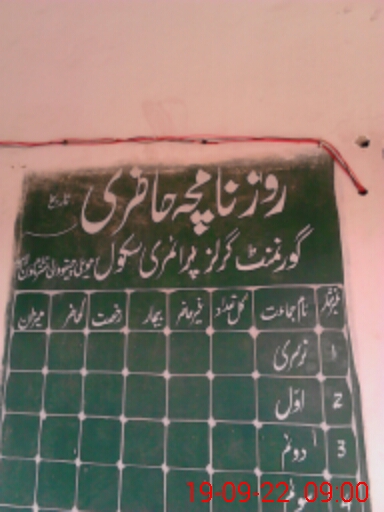 روزنامچہ حاضری
تاریخ
گورنمنٹ گرلز پرائمری سکول
نمبر شمار نام جماعت کل تعداد غیر حاضر بیمار رخصت حاضر میزان
1 نرسری
2 اوّل
3 دوئم
4
19-09-22 09:00